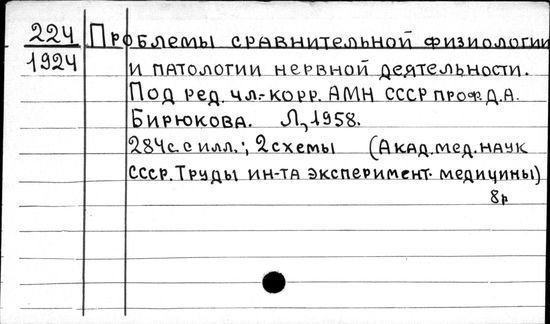 224 Проблемы сравнительной физиологии
1924 и патологии нервной деятельности.
Под ред. чл.-корр. АМН СССР проф. Д.А.
Бирюкова. Л., 1958.
284 с. с илл.; 2 схемы (Акад. мед. наук
СССР. Труды ин-та эксперимент. медицины)
8р